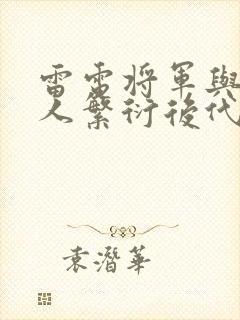 雷電將軍與
人繁衍後代
袁潛華